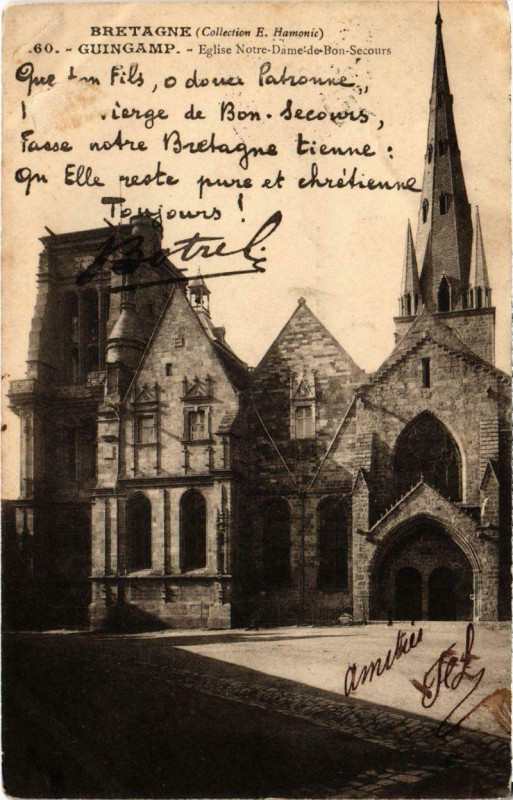 BRETAGNE (Collection E. Hamonic)
60. - GUINGAMP. - Eglise Notre-Dame-de-Bon-Secours
Que ton Fils, o douce Patronne,
ierge de Bon-Secours,
Fasse notre Bretagne tienne :
Qu'Elle reste pure et chrétienne
Toujours !
Botrel
amitiés